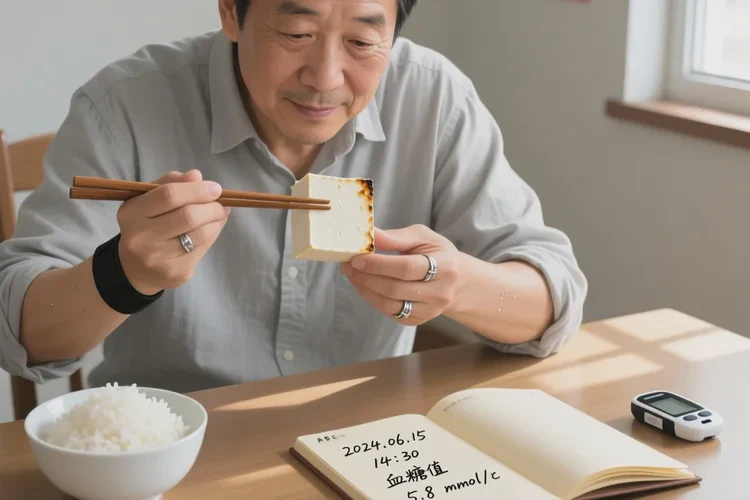 2024.06.15
14:30
血糖值
5.8 mmol/c